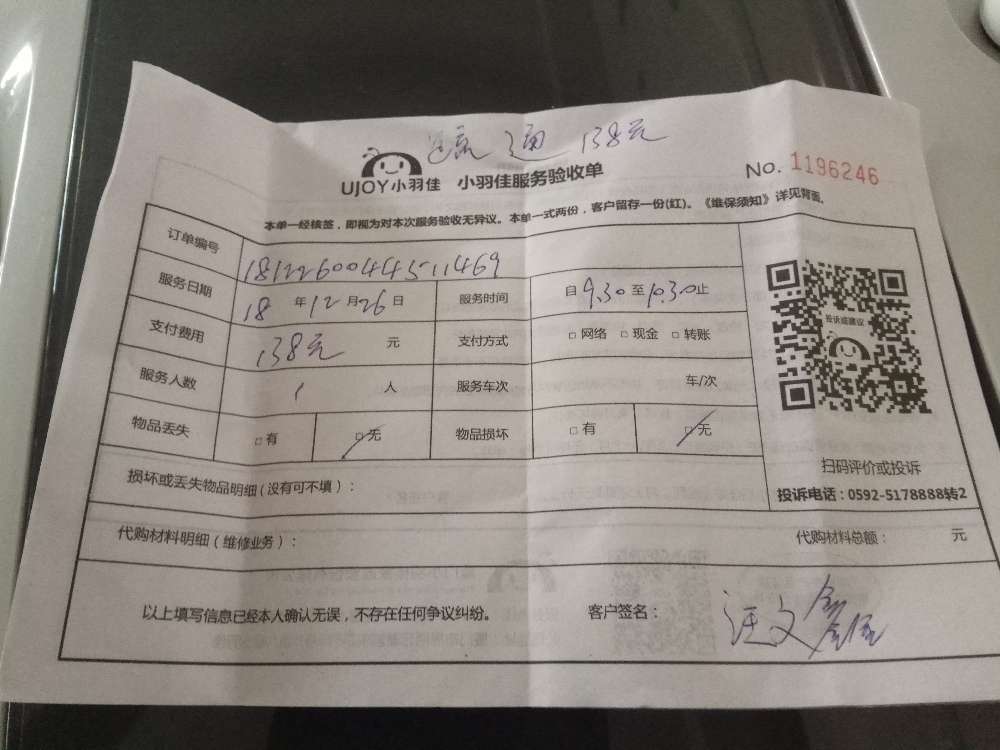 通 138元
UJOY小羽佳 小羽佳服务验收单 No. 1196246
本单一经核签，即视为对本次服务验收无异议。本单一式两份，客户留存一份(红)。《维保须知》详见背面。
订单编号 181226004445-11469
服务日期 18 年 12 月 26 日 服务时间 自 9.30 至 10.30 止
支付费用 138元 元 支付方式 □ 网络 □ 现金 □ 转账
服务人数 1 人 服务车次 车/次
物品丢失 □ 有 □ 无 物品损坏 □ 有 □ 无
投诉或建议
扫码评价或投诉
投诉电话：0592-5178888转2
损坏或丢失物品明细(没有可不填)：
代购材料明细(维修业务)： 代购材料总额： 元
以上填写信息已经本人确认无误，不存在任何争议纠纷。 客户签名： 汪文